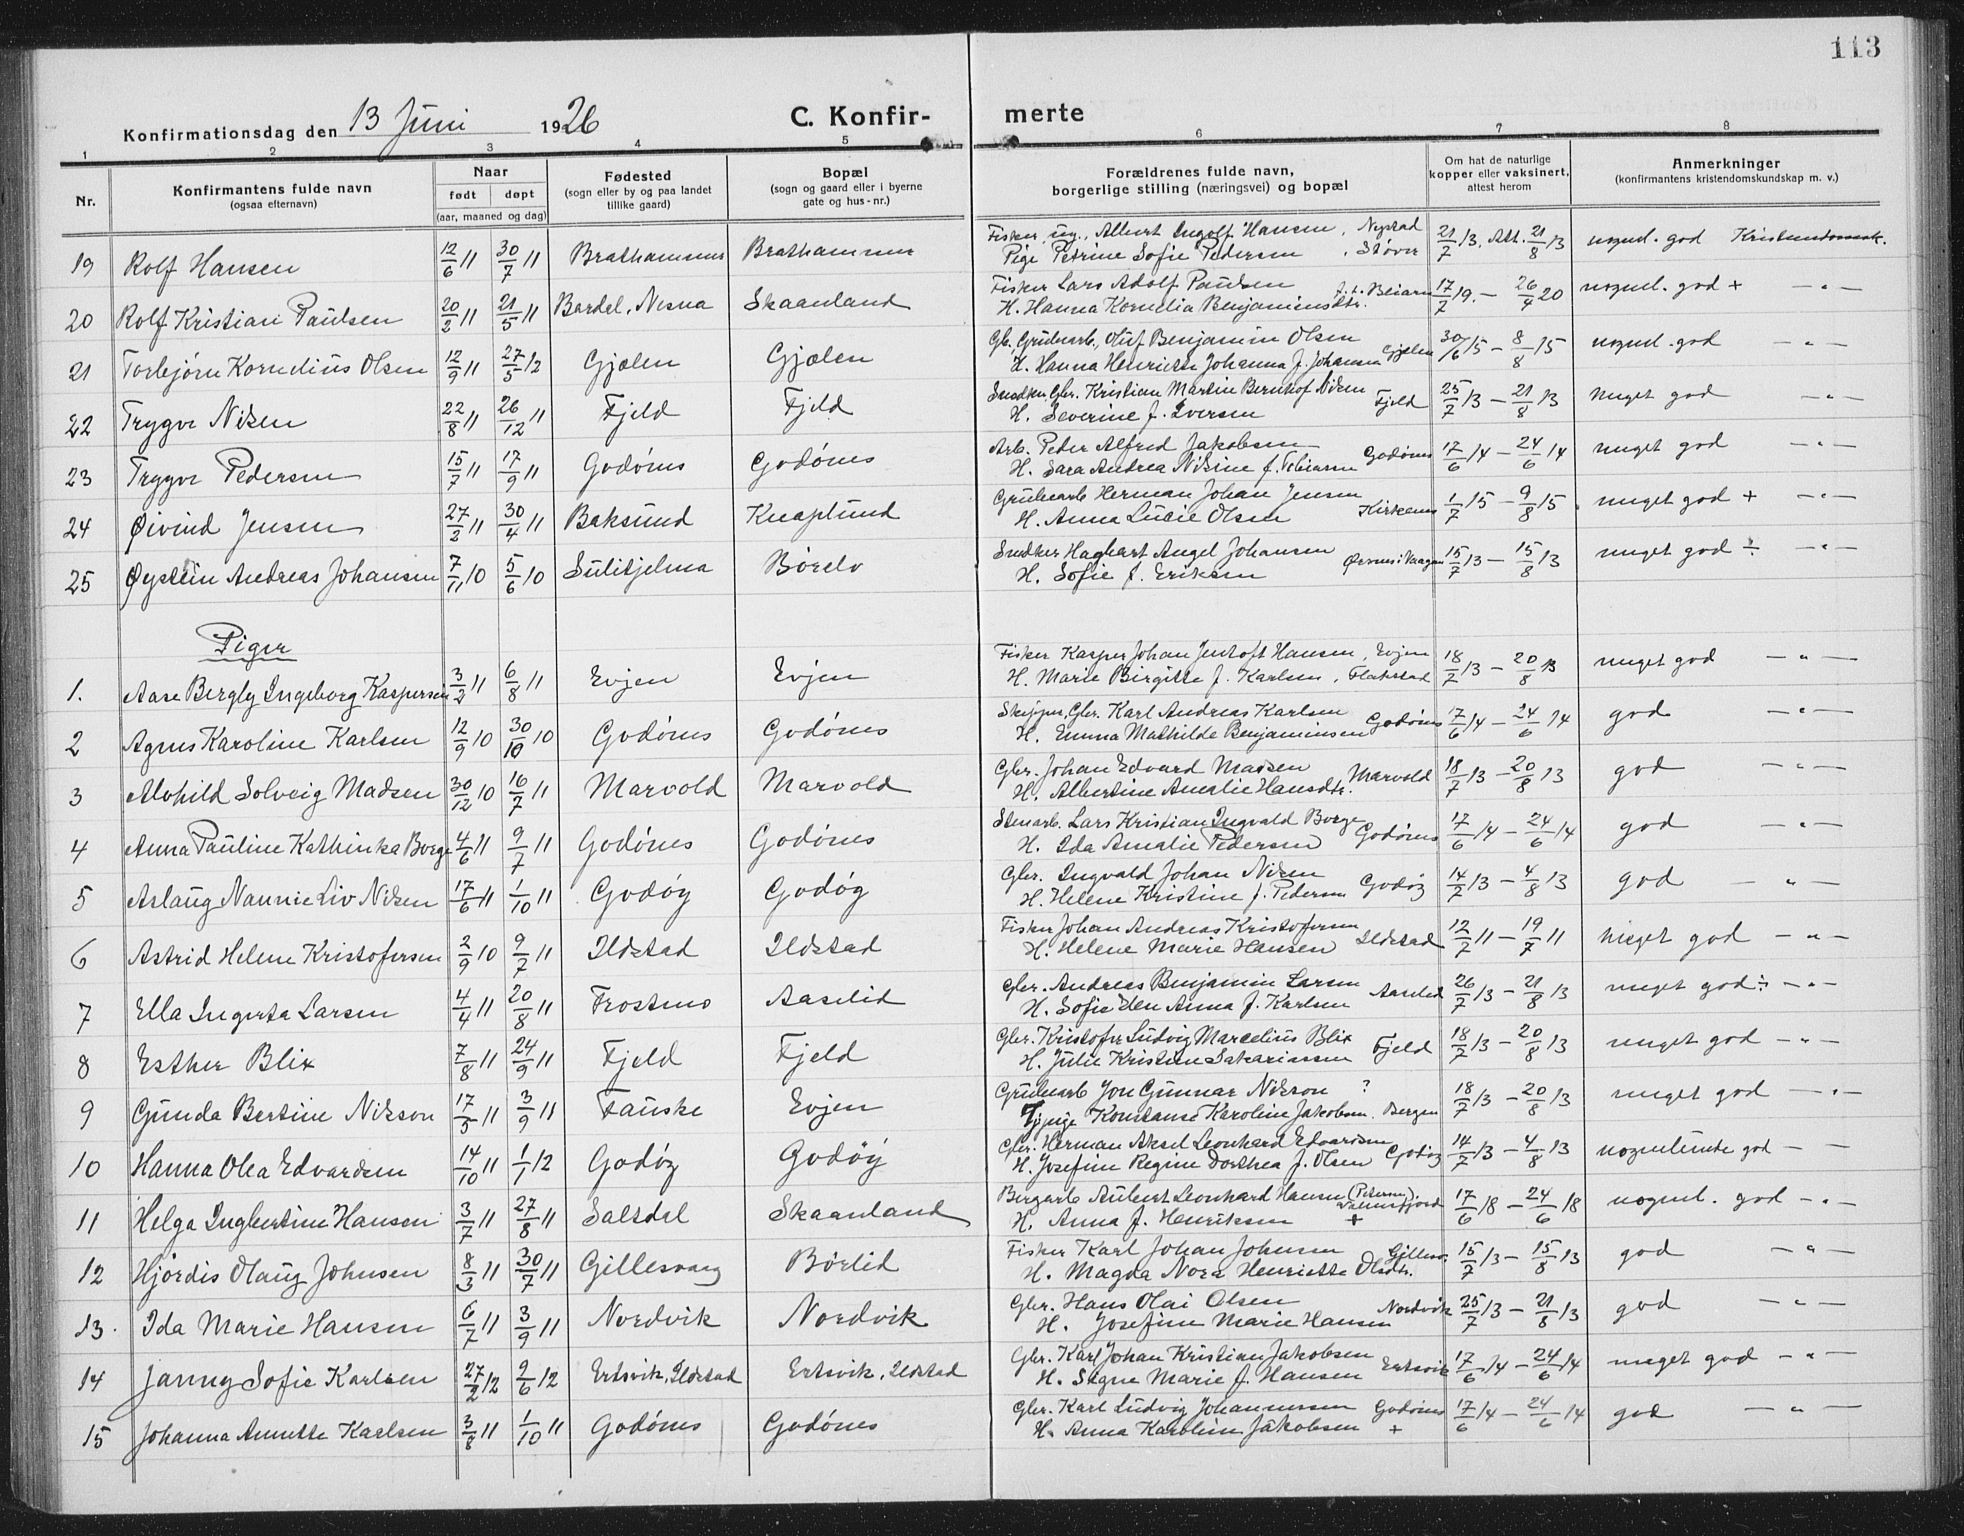 113
Konfirmationsdag den 13 Juni 1926 C. Konfirmerte
1 2 3 4 5 6 7 8
Nr. Konfirmantens fulde navn (ogsaa efternavn) Naar født døpt (aar, maaned og dag) Fødested (sogn eller by og paa landet tillike gaard) Bopæl (sogn og gaard eller i byerne gate og hus-nr.) Forældrenes fulde navn, borgerlige stilling (næringsvei) og bopæl Om hat de naturlige kopper eller vaksinert, attest herom Anmerkninger (konfirmantens kristendomskundskap m. v.)
19 Rolf Hansen 12/6 11 30/7 11 Brathammer Brathammer Fisker, ug., Albert Ingolf Hansen, Nystad 21/7 13. Att. 21/8 13 nogenl. god Kristendomsk.
Pige Petrine Sofie Pedersen, Støver
20 Rolf Kristian Paulsen 20/2 11 21/5 11 Bardal, Nesna Skaanland Fisker Lars Adolf Paulsen 17/7 19. – 26/4 20 nogenl. god + – " –
H. Hanna Kornelia Benjaminsdtr. Beiarn
21 Torbjørn Kornelius Olsen 12/9 11 27/5 12 Gjælen Gjælen Gb. Grubearb. Oluf Benjamin Olsen 30/6 15 – 8/8 15 nogenl. god – " –
H. Hanna Henriette Johanna f. Johansen Gjælen
22 Trygve Nilsen 22/8 11 26/12 11 Fjeld Fjeld Snedker, Gbr. Kristian Martin Bernhof Nilsen Fjeld 25/7 13 – 21/8 13 meget god – " –
H. Severine f. Iversen
23 Trygve Pedersen 15/7 11 17/9 11 Godønes Godønes Arb. Peder Alfred Jakobsen Godønes 17/6 14 – 24/6 14 meget god – " –
H. Sara Andrea Nilsine f. Tobiasen
24 Øivind Jensen 27/2 11 30/4 11 Baksund Knaplund Grubearb Herman Johan Jensen 1/7 15 – 9/8 15 meget god + – " –
H. Anna Lucie Olsen Kirkenes
25 Øystein Andreas Johansen 7/11 10 5/6 10 Sulitjelma Børelv Snedker Hagbart Angel Johansen 15/7 13 – 15/8 13 meget god ÷ – " –
H. Sofie f. Eriksen Ørsnes i Vaagan
Piger
1. Aase Bergly Ingeborg Kaspersen 3/2 11 6/8 11 Evjen Evjen Fisker Kasper Johan Jentoft Hansen, Evjen 18/7 13 – 20/8 13 meget god – " –
H. Marie Birgitte f. Karlsen, Flakstad
2 Agnes Karoline Karlsen 12/9 10 30/10 10 Godønes Godønes Skipper, Gbr. Karl Andreas Karlsen Godønes 17/6 14 – 24/6 14 god – " –
H. Emma Mathilde Benjaminsen
3 Alvhild Solveig Madsen 30/12 10 16/7 11 Marvold Marvold Gbr. Johan Edvard Madsen Marvold 18/7 13 – 20/8 13 god – " –
H. Albertine Amalie Hansdtr.
4 Anna Pauline Kathinka Borge 4/6 11 9/7 11 Godønes Godønes Stenarb. Lars Kristian Ingvald Borge 17/6 14 – 24/6 14 god – " –
H. Ida Amalie Pedersen Godønes
5 Aslaug Nannie Liv Nilsen 17/6 11 1/10 11 Godøy Godøy Gbr. Ingvald Johan Nilsen 14/7 13 – 4/8 13 god – " –
H. Helene Kristine f. Pedersen Godøy
6 Astrid Helene Kristofersen 2/9 10 9/7 11 Ildstad Ildstad Fisker Johan Andreas Kristofersen 12/7 11 – 19/7 11 meget god – " –
H. Helene Marie Hansen Ildstad
7 Ella Ingerta Larsen 4/4 11 20/8 11 Frostmo Aaselid Gbr. Andreas Benjamin Larsen Aaselid 26/7 13 – 21/8 13 meget god ÷ – " –
H. Sofie Elen Anna f. Karlsen
8 Esther Blix 7/8 11 24/9 11 Fjeld Fjeld Gbr. Kristofer Ludvig Marcelius Blix Fjeld 18/7 13 – 20/8 13 meget god – " –
H. Julie Kristine Sakariassen
9 Gunda Bertine Nilsson 17/5 11 3/9 11 Fauske Evjen Grubearb Jon Gunnar Nilsson ? 18/7 13 – 20/8 13 meget god – " –
Tj.pige Konstanse Karoline Jakobsen, Bergen
10 Hanna Olea Edvardsen 14/10 11 1/1 12 Godøy Godøy Gbr. Herman Aksel Leonhard Edvardsen 14/7 13 – 4/8 13 nogenlunde god – –
H. Josefine Regine Dorthea f. Olsen Godøy
11 Helga Ingbertine Hansen 3/7 11 27/8 11 Saltdal Skaanland Bergarb Aubert Leonhard Hansen (Petersen) Valnesfjord 17/6 18 – 24/6 18 nogenl. god – " –
H. Anna f. Henriksen +
12 Hjördis Olaug Johnsen 8/3 11 30/7 11 Gillesvaag Børlid Fisker Karl Johan Johnsen Gillesv. 15/7 13 – 15/8 13 god – " –
H. Magda Nora Henriette Olsdtr.
13. Ida Marie Hansen 6/7 11 3/9 11 Nordvik Nordvik Gbr. Hans Olai Olsen Nordvik 25/7 13 – 21/8 13 god – " –
H. Josefine Marie Hansen
14 Janny Sofie Karlsen 27/2 12 2/6 12 Ertsvik, Ildstad Ertsvik, Ildstad Gbr. Karl Johan Kristian Jakobsen Ertsvik 17/6 14 – 24/6 14 meget god – " –
H. Signe Marie f. Hansen
15 Johanna Annette Karlsen 3/8 11 1/10 11 Godønes Godønes Gbr. Karl Ludvig Johannessen Godønes 17/6 14 – 24/6 14 god – " –
H. Anna Karoline Jakobsen +